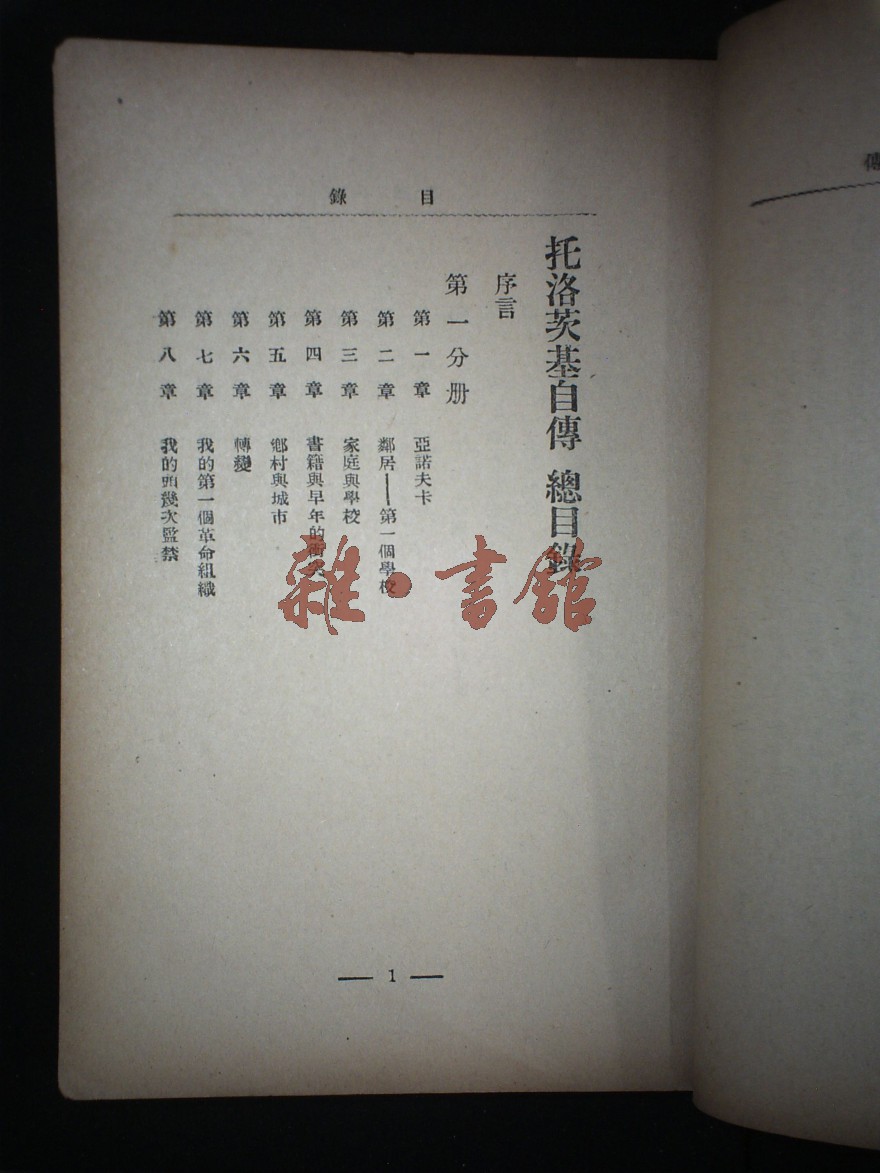 目錄
托洛茨基自傳 總目錄
序言
第一分册
第一章 亞諾夫卡
第二章 鄰居——第一個學校
第三章 家庭與學校
第四章 書籍與早年的衝突
第五章 鄉村與城市
第六章 轉變
第七章 我的第一個革命組織
第八章 我的頭幾次監禁
— 1 —
傳
雜·書館